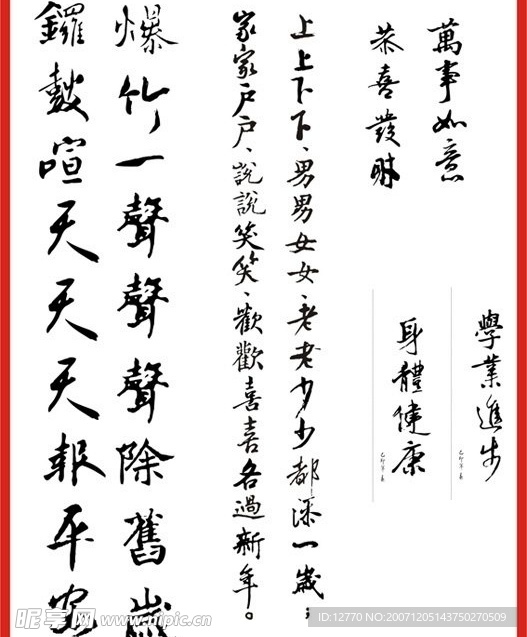 萬事如意
恭喜發財
學業進步
己卯年春
身體健康
己卯年春
上上下下、男男女女、老老少少都添一歲；
家家戶戶、說說笑笑、歡歡喜喜各過新年。
爆竹一聲聲聲除舊歲
鑼鼓喧天天天報平安
昵享网 www.nipic.cn
ID:12770 NO:20071205143750270509